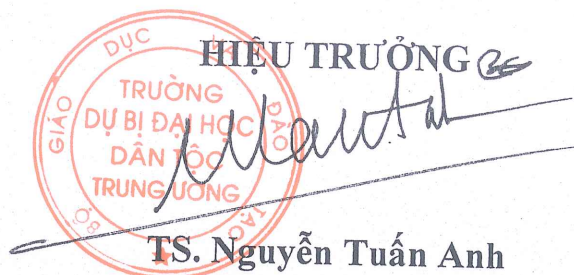 HIỆU TRƯỞNG
BỘ GIÁO DỤC VÀ ĐÀO TẠO
TRƯỜNG
DỰ BỊ ĐẠI HỌC
DÂN TỘC
TRUNG ƯƠNG
TS. Nguyễn Tuấn Anh